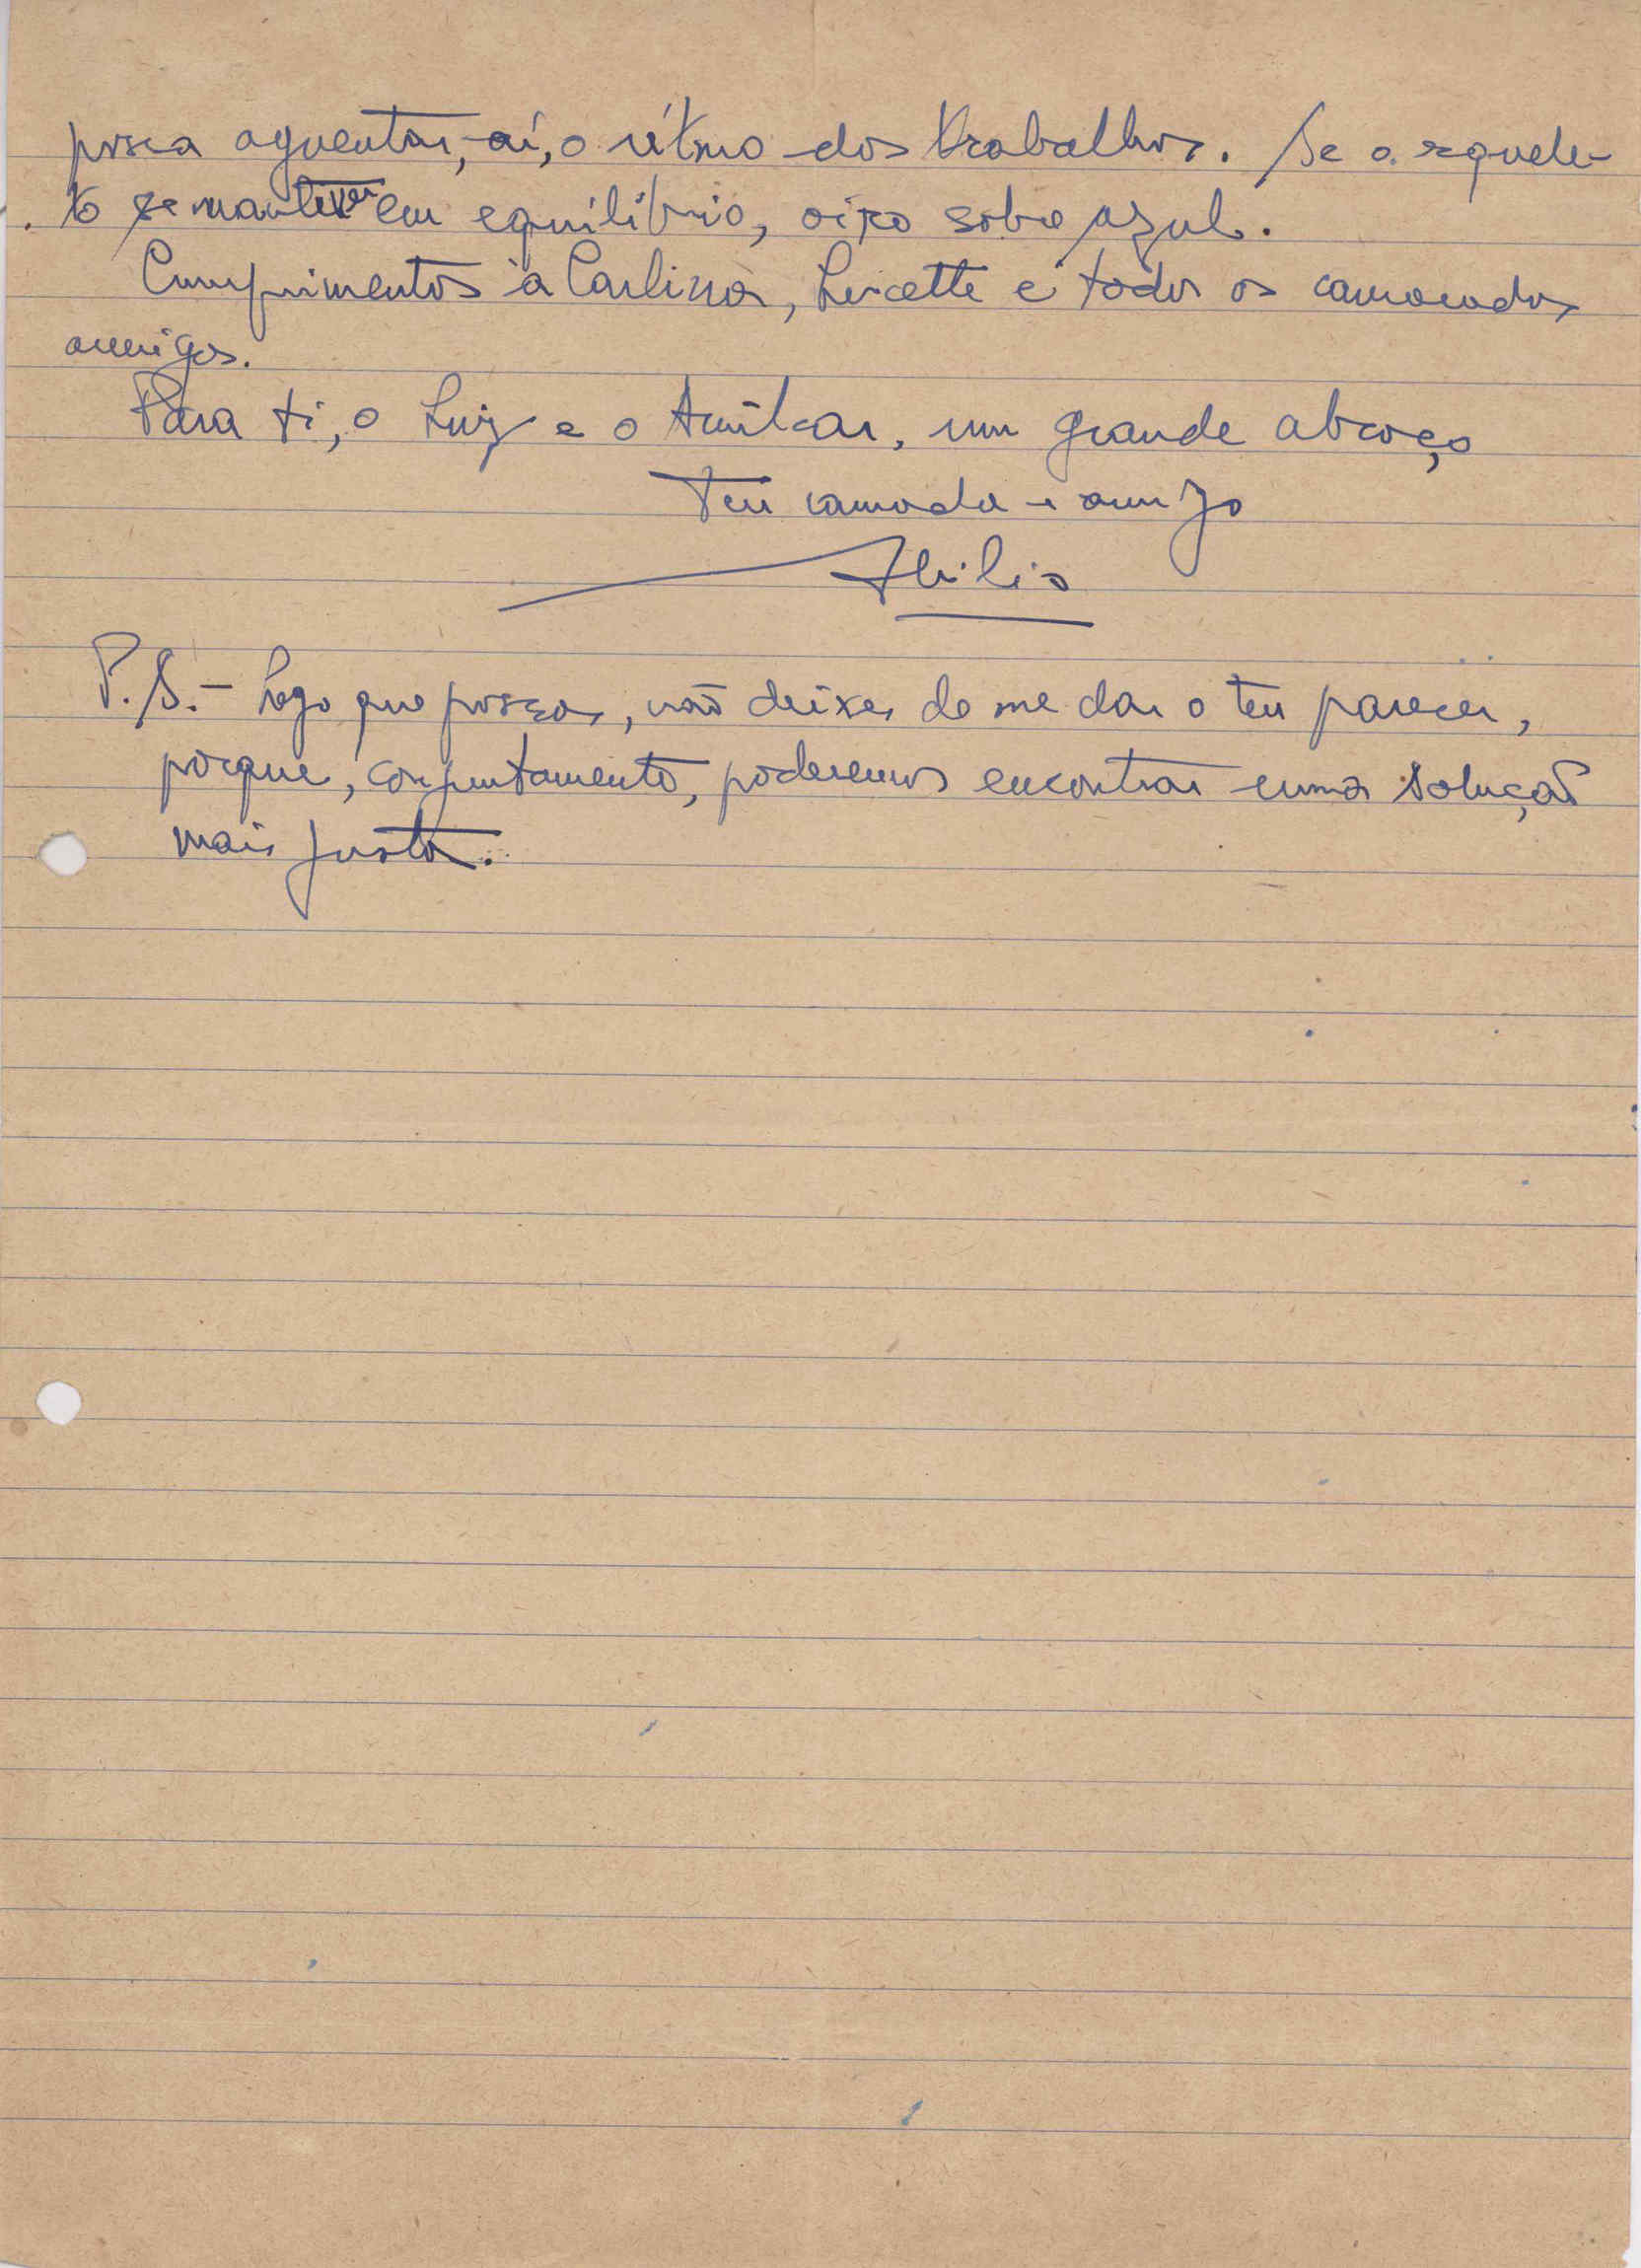 possa aguentar, aí, o rítmo dos trabalhos. Se o esquele-
to se mantiver em equilíbrio, oiro sobre azul.
Cumprimentos à Carlina, Lucette e todos os camaradas
amigos.
Para ti, o Luiz e o Amílcar, um grande abraço
Teu camarada e amigo
Abílio
P.S. - Logo que possas, não deixes de me dar o teu parecer,
porque, conjuntamente, poderemos encontrar uma solução
mais justa.